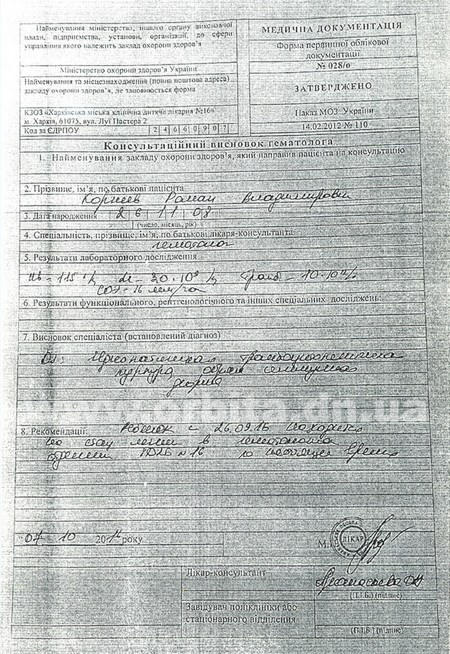 Найменування міністерства, іншого органу виконавчої
влади, підприємства, установи, організації, до сфери
управління якого належить заклад охорони здоров'я
Міністерство охорони здоров'я України
Найменування та місцезнаходження (повна поштова адреса)
закладу охорони здоров'я, де заповнюється форма
КЗОЗ «Харківська міська клінічна дитяча лікарня №16»
м. Харків, 61075, вул. Луї Пастера 2
Код за ЄДРПОУ
МЕДИЧНА ДОКУМЕНТАЦІЯ
Форма первинної облікової
документації
№ 028/о
ЗАТВЕРДЖЕНО
Наказ МОЗ України
14.02.2012 № 110
Консультаційний висновок гематолога
1. Найменування закладу охорони здоров'я, який направив пацієнта на консультацію
2. Прізвище, ім'я, по батькові пацієнта
Роман Владимирович
3. Дата народження 26 11 08
(число, місяць, рік)
4. Спеціальність, прізвище, ім'я, по батькові лікаря-консультанта
гематолог
5. Результати лабораторного дослідження
Hb - 115 г/л
СОЭ - 16 мм/час
6. Результати функціонального, рентгенологічного та інших спеціальних досліджень:
7. Висновок спеціаліста (встановлений діагноз)
пурпура
форма
8. Рекомендації: Ребенок с 26.09.16
в
№16 по настоящее время
www.orbita.dn.ua
07 10 року
М.П.
ЛІКАР
Лікар-консультант
(П.І.Б.) (підпис)
Завідувач поліклініки або
стаціонарного відділення
(П.І.Б.) (підпис)